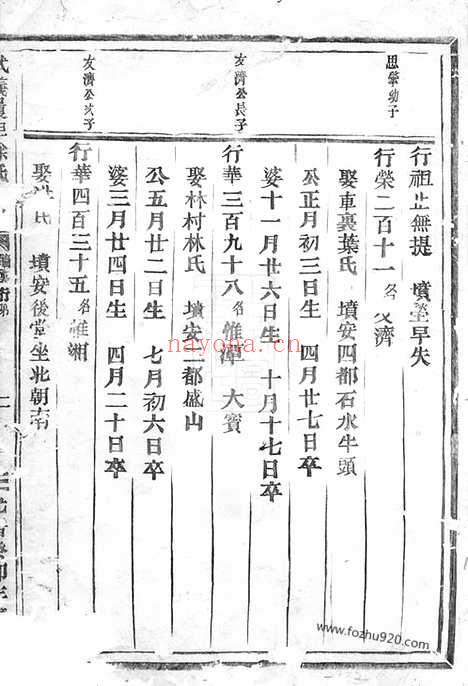 思肇幼子
行祖止無提 墳塋早失
行榮二百十一名友濟
娶車裏葉氏 墳安四都石水牛頭
公正月初三日生 四月廿七日卒
婆十一月廿六日生 十月十七日卒
友濟公長子
行華三百九十八名惟潭 大賓
娶林村林氏 墳安二都盛山
公五月廿二日生 七月初六日卒
婆三月廿四日生 四月二十日卒
友濟公次子
行華四百三十五名惟湘
娶 氏 墳安後堂坐北朝南
nayona.cn
www.fozhu920.com